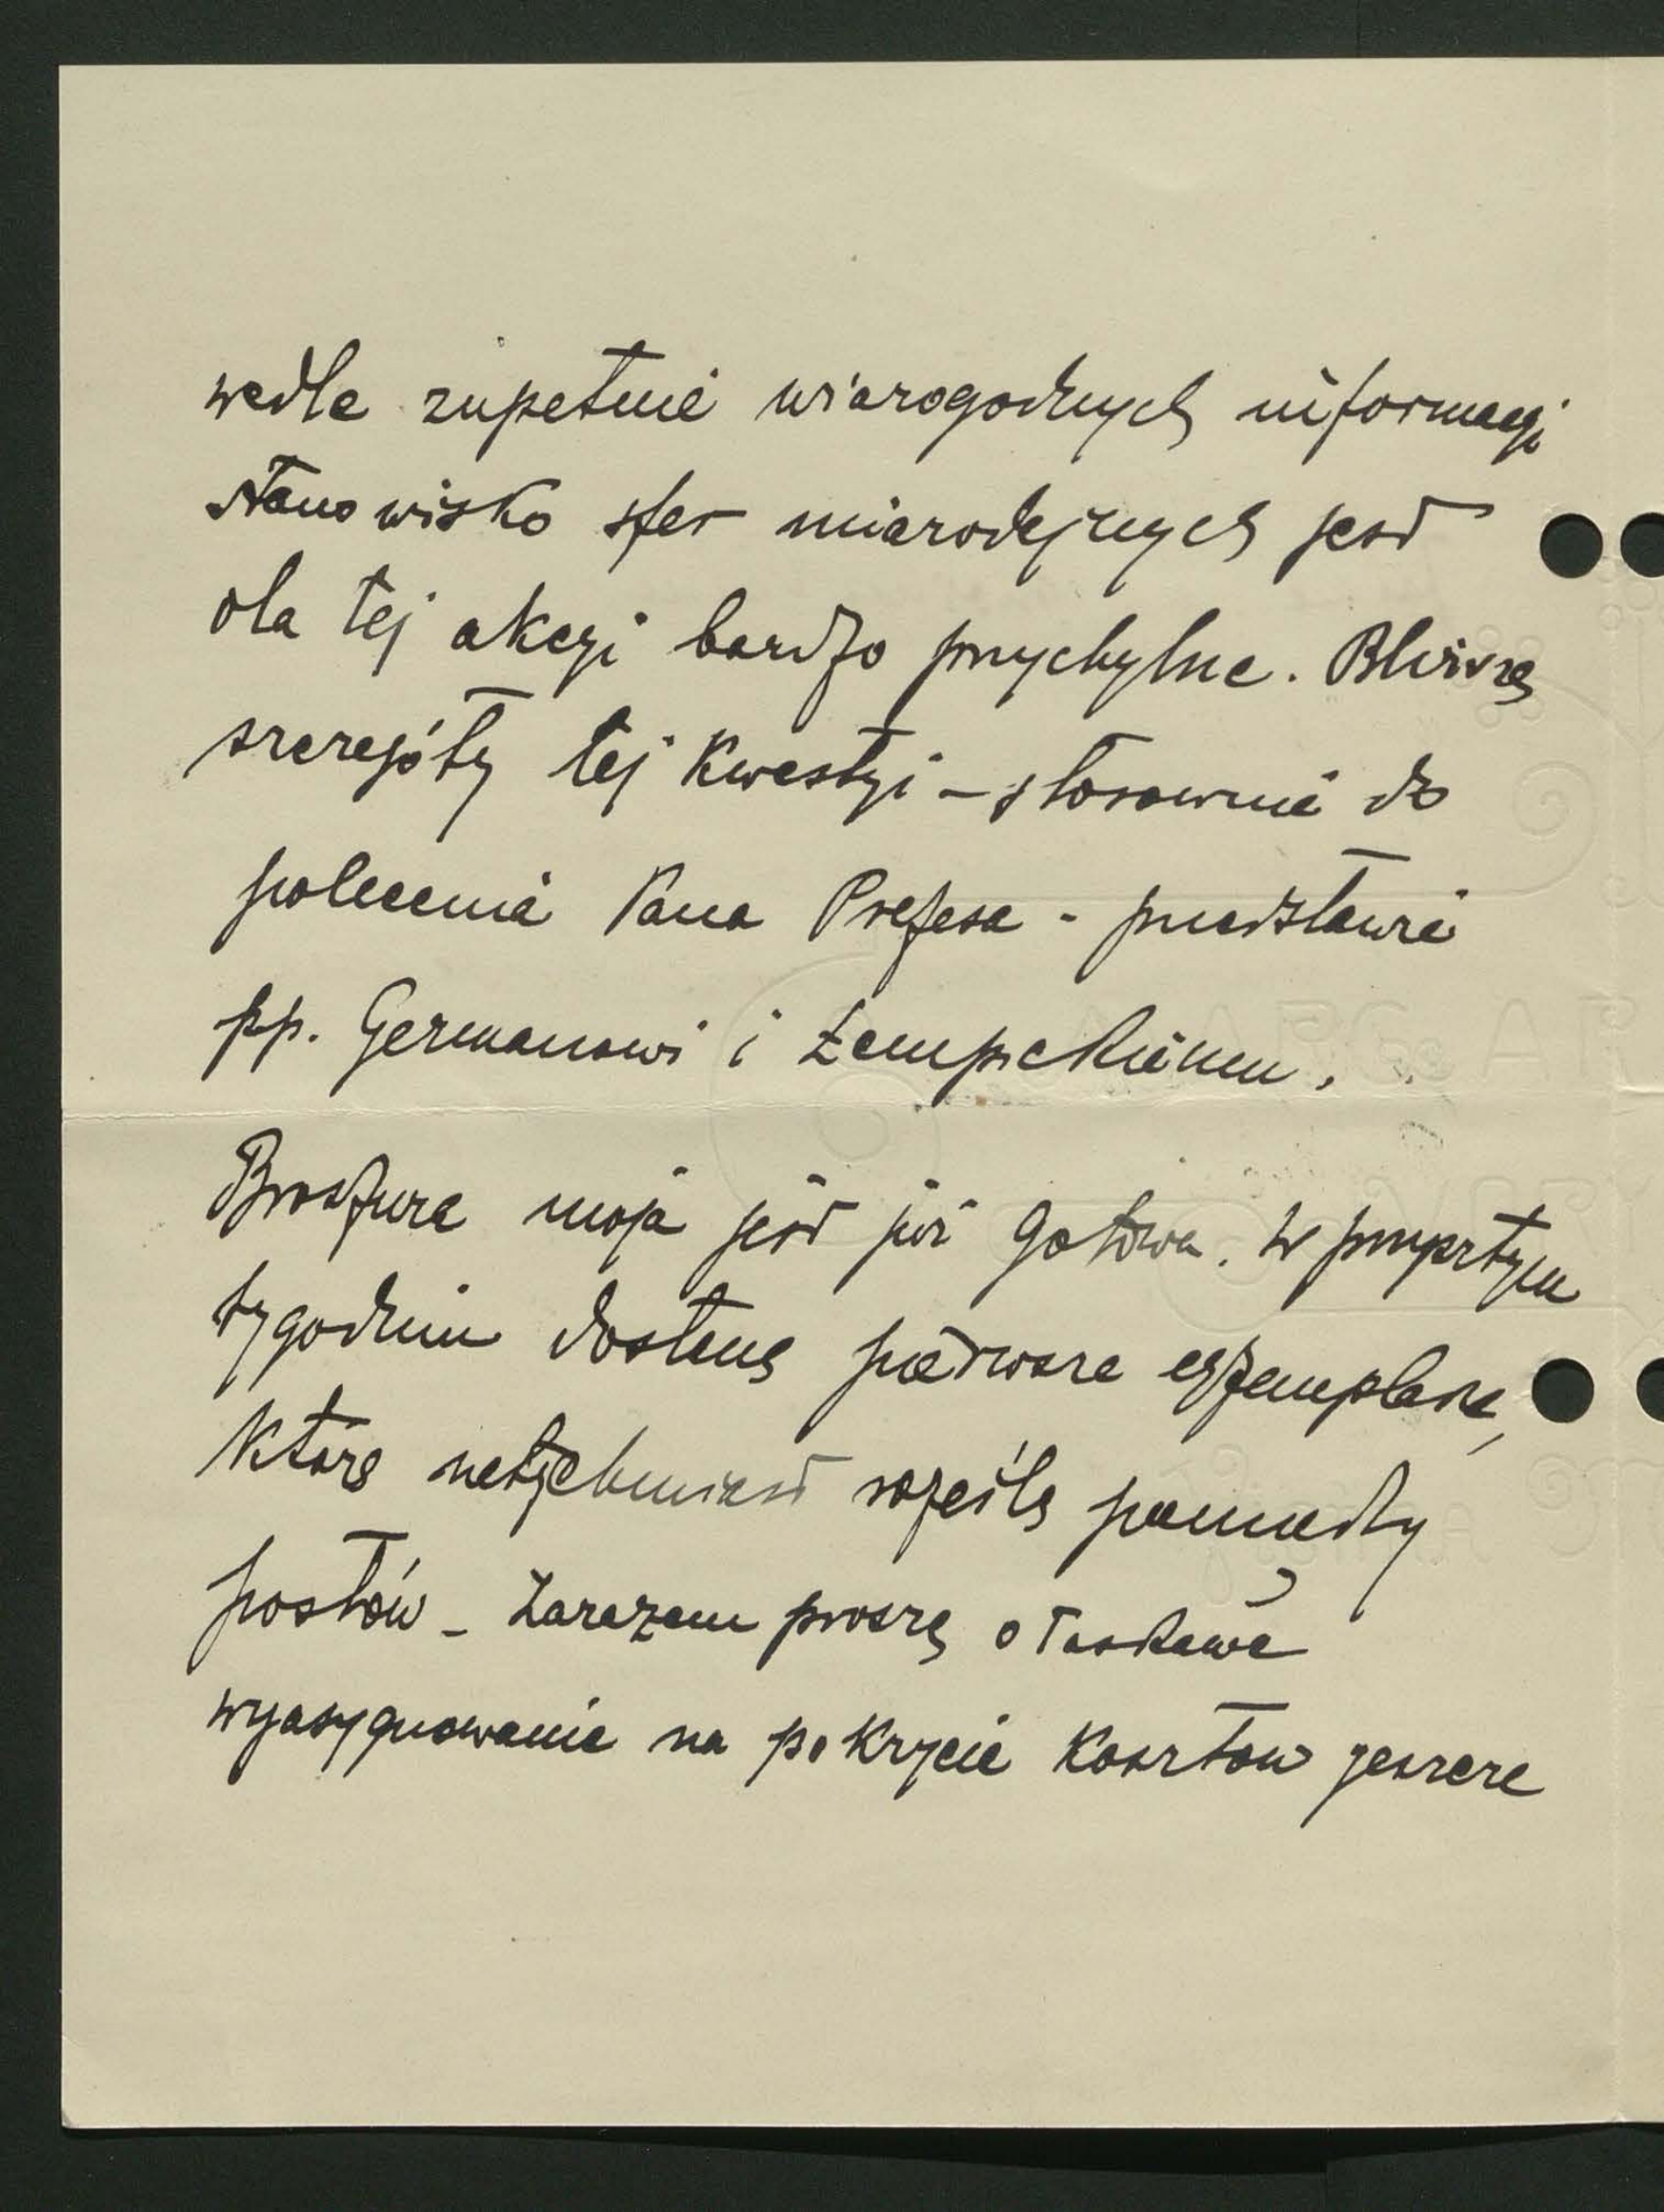 wedle zupełnie wiarogodnych informacyi
stanowisko sfer miarodajnych jest
dla tej akcyi bardzo przychylne. Bliższe
szczegóły tej kwestyi – stosownie do
polecenia Pana Prezesa - przedstawię
pp. Germanowi i Zempickiemu.
Broszura moja jest już gotowa. W przyszłym
tygodniu dostanę pierwsze egzemplarze,
które natychmiast roześlę pomiędzy
posłów – Zarazem proszę o łaskawe
wyasygnowanie na pokrycie kosztów jeszcze